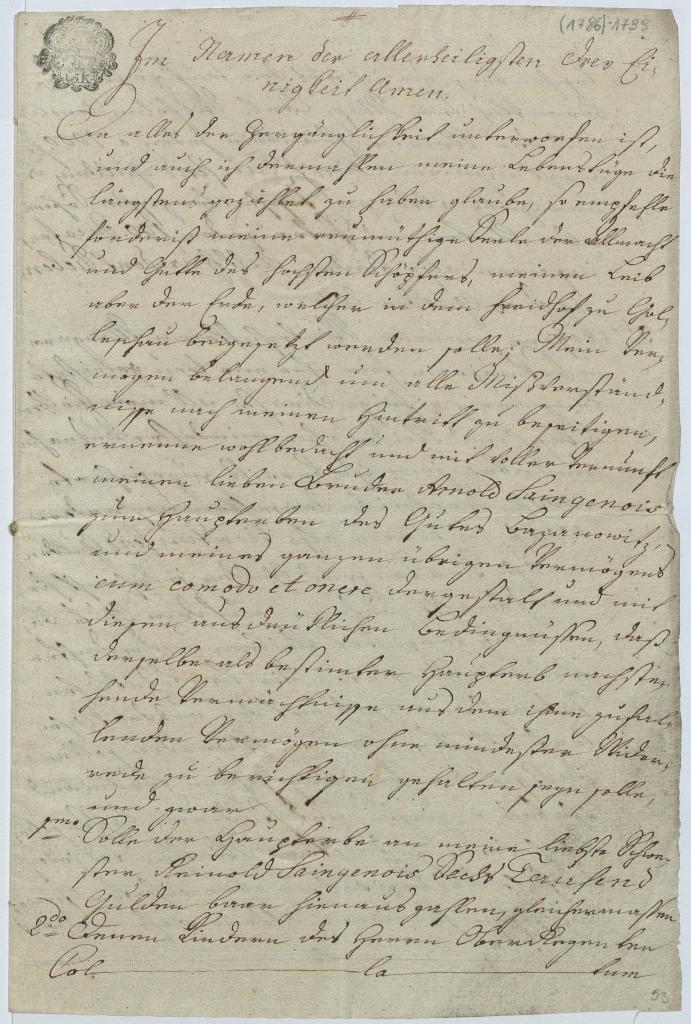 (1786)-1799
Im Namen der allerheiligsten Drey Ei-
nigkeit Amen.
Da alles der Zergänglichkeit unterworfen ist,
und auch ich dermahlen meine Lebenstäge die
längsten gezählet zu haben glaube, so empfehle
förderist meine reumüthige Seele der Allmacht
und Gütte des höchsten Schöpfers, meinen Leib
aber der Erde, welcher in dem Freidhof zu Gol-
leschau beigesetzt werden solle; Mein Ver-
mögen belangend um alle Mißverständ-
nisse nach meinen Hintritt zu beseitigen,
ernenne wohlbedacht und mit voller Vernunft
meinen lieben Bruder Arnold Saingenois
zum Haupterben des Gutes Bazanowitz,
und meines ganzen übrigen Vermögens
cum comodo et onere dergestalt und mit
diesen ausdrüklichen Bedingnüssen, daß
derselbe als bestimter Haupterb nachste-
hende Vermächtnisse aus dem ihme zufal-
lenden Vermögen ohne mindester Wider-
rede zu berichtigen gehalten seyn solle,
und zwar
1mo Solle der Haupterbe an meine liebste Schwe-
ster Reinold Saingenois Sechs Tausend
Gulden baar hinauszahlen, gleichermassen
2do Denen Kindern des Herrn Oberregenten
Col la tum
53